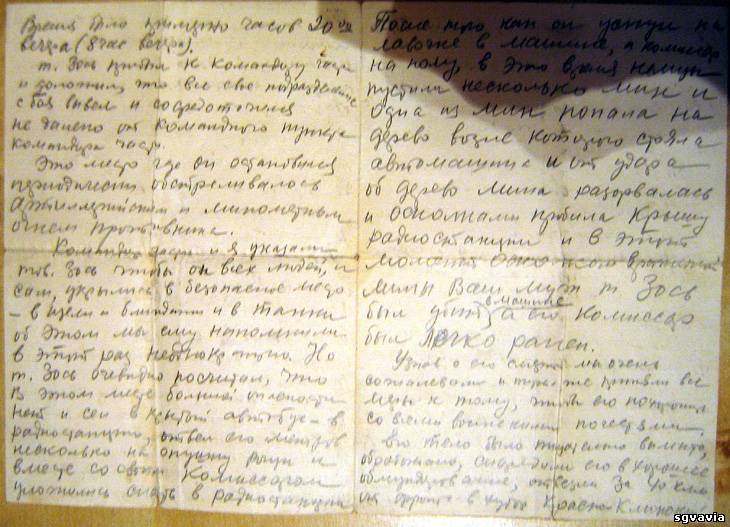 Время было примерно часов 20 00
вечера (8 час вечера).
т. Зось прибыл к командиру части
и доложил, что все свои подразделения
с боя вывел и сосредоточился
не далеко от командного пункта
командира части.
Это место где он остановился
периодически обстреливалось
артиллерийским и минометным
огнем противника.
Командир части и я указали
тов. Зось чтобы он всех людей, и
сам, укрылись в безопасное место
– в щели и блиндажи и в танки
об этом мы ему напомнили
в этот раз неоднократно. Но
т. Зось очевидно посчитал, что
в этом месте большой опасности
нет и сел в крытый автобус – в
радиостанцию, отвел его метров
несколько на опушку рощи и
вместе со своим Комиссаром
уложились спать в радиостанции
После того как он уснул на
лавочке в машине, а комиссар
на полу, в это время немцы
пустили несколько мин и
одна из мин попала на
дерево возле которого стояла
автомашина и от удара
об дерево мина разорвалась
и осколками пробила крышу
радиостанции и в этот
момент осколком вражеской
мины Ваш муж т. Зось
был убит в машине а его комиссар
был легко ранен.
Узнав о его смерти мы очень
сожалевали и приняли все
меры к тому, чтобы его похоронить
со всеми воинскими почестями.
Его тело было тщательно вымыто,
обработано, снарядили его в хорошее
обмундирование, отвезли за 40 клм
от фронта в хутор
sgvavia